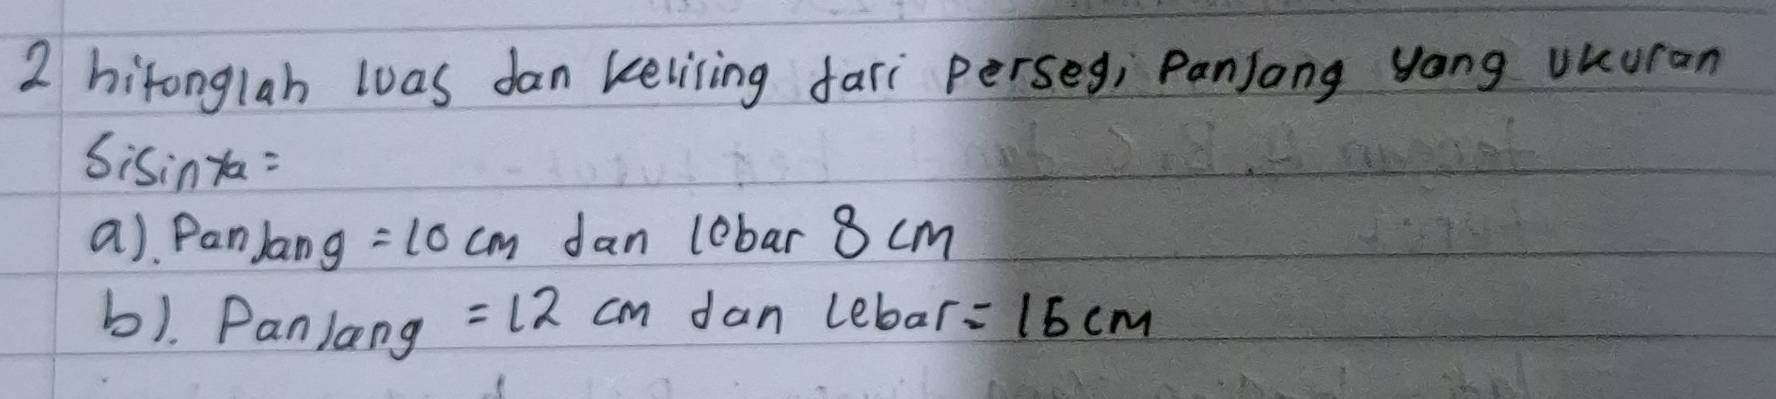 2 hitonglah luas dan keliling dari persegi Panjang yang ukuran
Sisinya =
a). Panjang = 10 cm dan lebar 8 cm
b). Panjang = 12 cm dan lebar = 15 cm